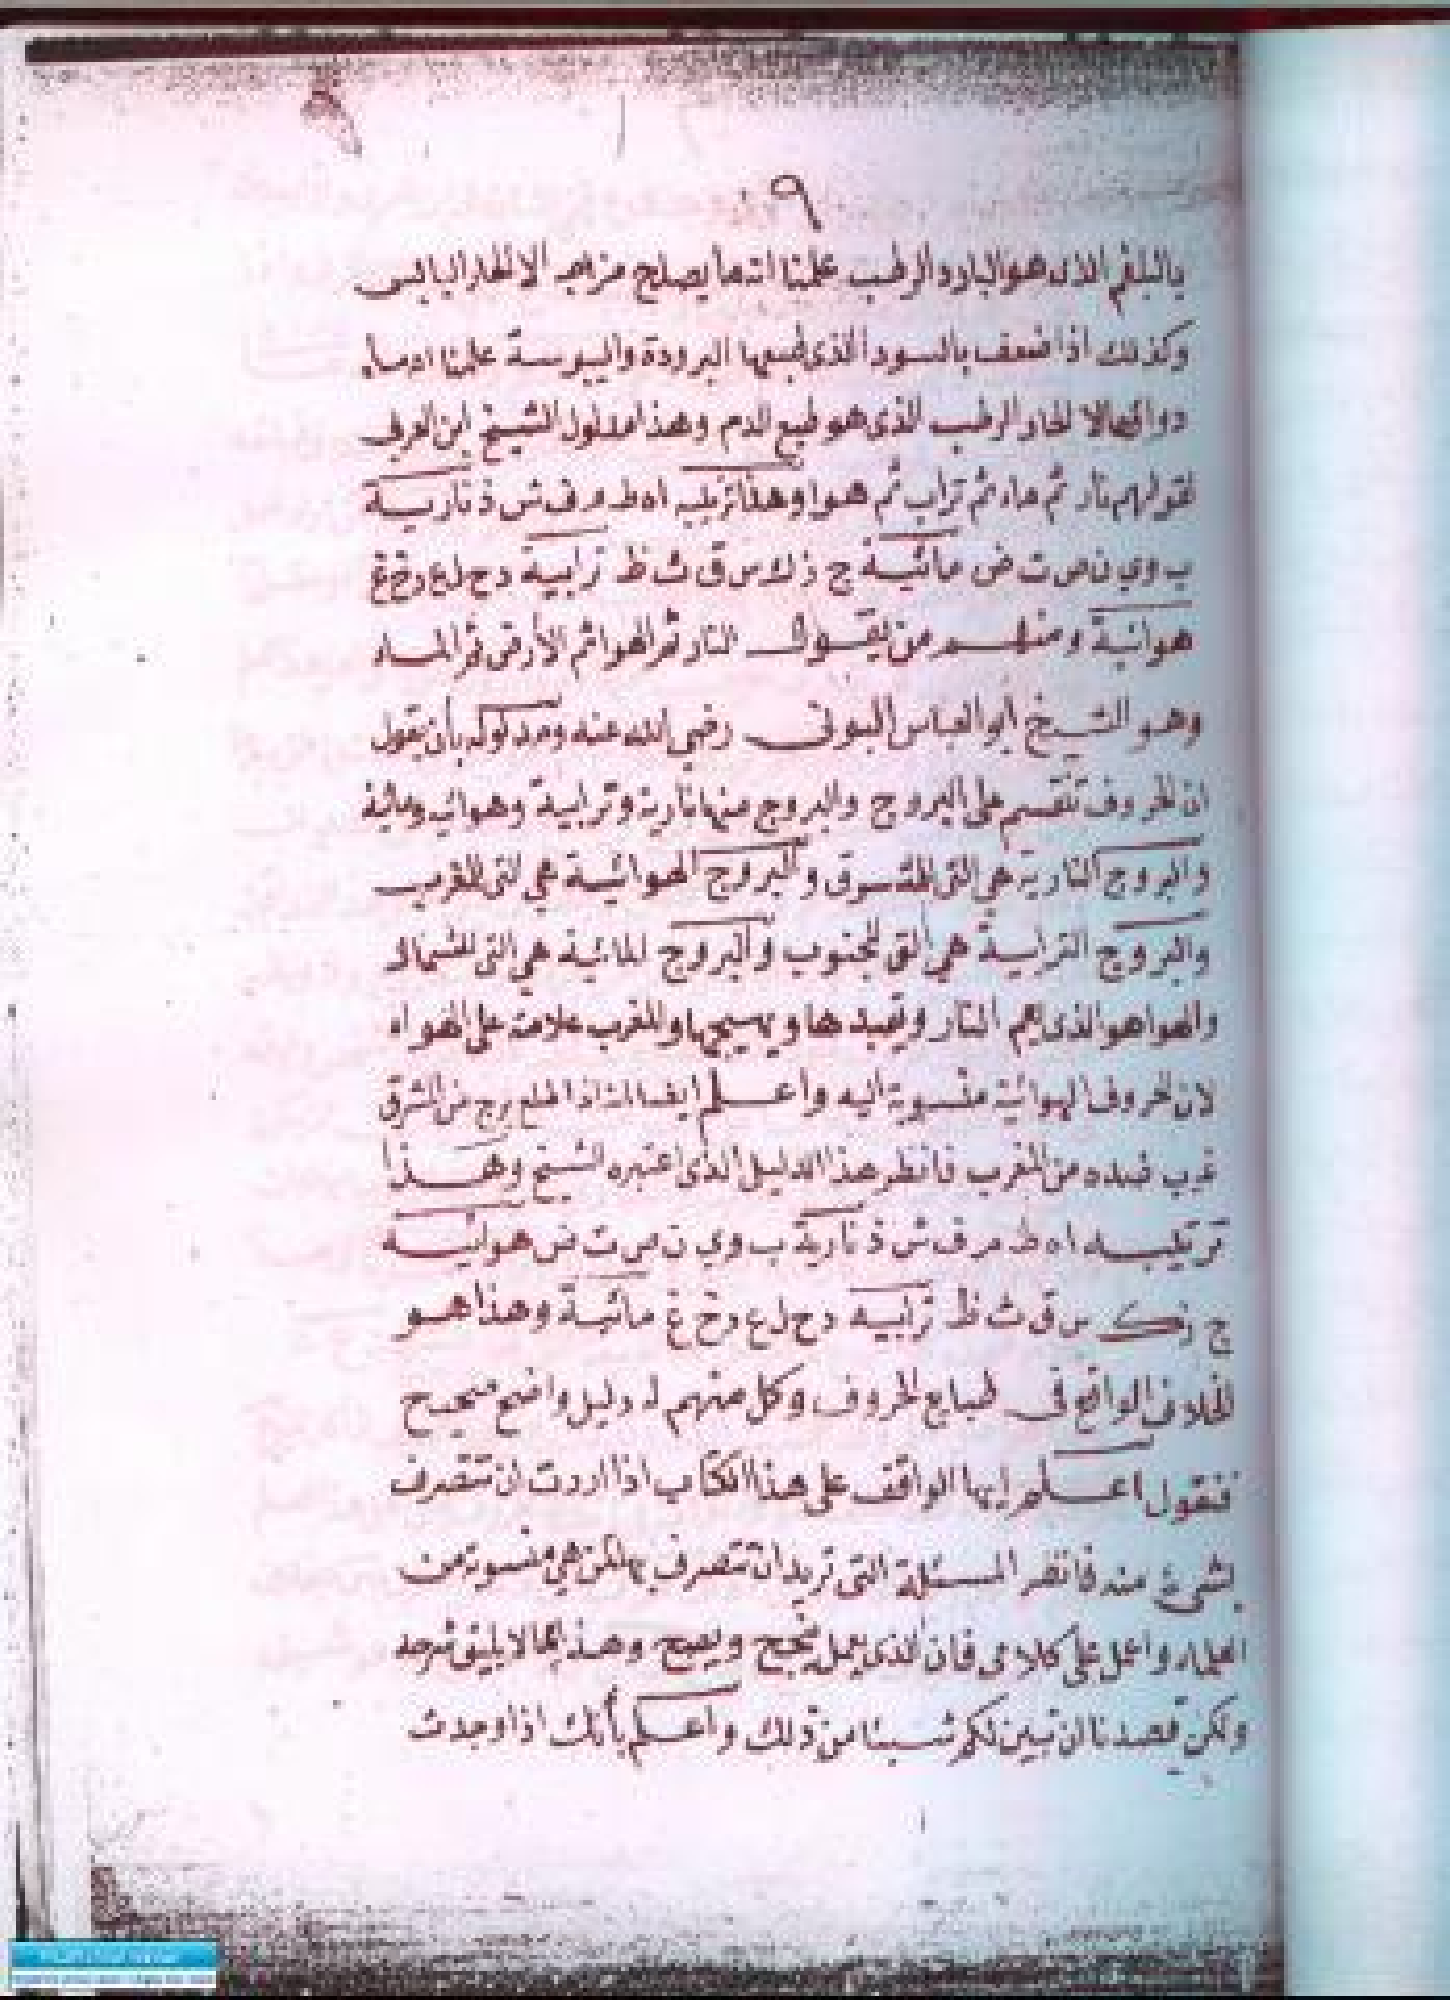 ٩
بالبلغم الذى هو البارد الرطب علمنا انه ما يصلح مزجه الا الحار اليابس
وكذلك اذا ضعف بالسودا الذى طبعها البرودة واليبوسة علمنا ان ما
دوائها الا الحار الرطب الذى هو طبع الدم وهذا مدلول الشيخ ابن العربى
لقولهم نار ثم ماء ثم تراب ثم هوا وهذا ترتيبه ا ه ط م ف ش ذ نارية
ب و ي ن ص ت ض مائية ج ز ك س ق ث ظ ترابية د ح ل ع ر خ غ
هوائية ومنهم من يقول النار ثم الهوا ثم الأرض ثم الماء
وهو الشيخ أبو العباس البونى رضى الله عنه ومدلوله بأن يقول
ان الحروف تنقسم على البروج والبروج منها نارية وترابية وهوائيه ومائية
والبروج النارية هى التى للشوق والبروج الهوائية هى التى للغرب
والبروج الترابية هى التى للجنوب والبروج المائية هى التى للشمال
والهوا هو الذى النار ويهيجها والمغرب علامة على الهواء
لان الحروف الهوائية منسوبة اليه واعلم ايضا انه اذا طلع برج من المشرق
غرب ضده من المغرب فانظر هذا الدليل الذى اعتبره الشيخ وهذا
ترتيبه ا ه ط م ف ش ذ نارية ب و ي ن ص ت ض هوائيه
ج ز ك س ق ث ظ ترابيه د ح ل ع ر خ غ مائية وهذا هو
الخلاف الواقع فى طبايع الحروف وكل منهم له دليل واضح صحيح
فنقول اعلم ايها الواقف على هذا الكتاب اذا اردت ان تتصرف
بشىء منه فانظر المسئلة التى تريد ان تتصرف بها لمن هى منسوبة من
العلماء واعمل على كلامى فان الذى يعمل ينجح ويصح وهذا مما لا يليق شرحه
ولكن قصدنا ان نبين لكم شيئا من ذلك واعلم بأنك اذا وجدت